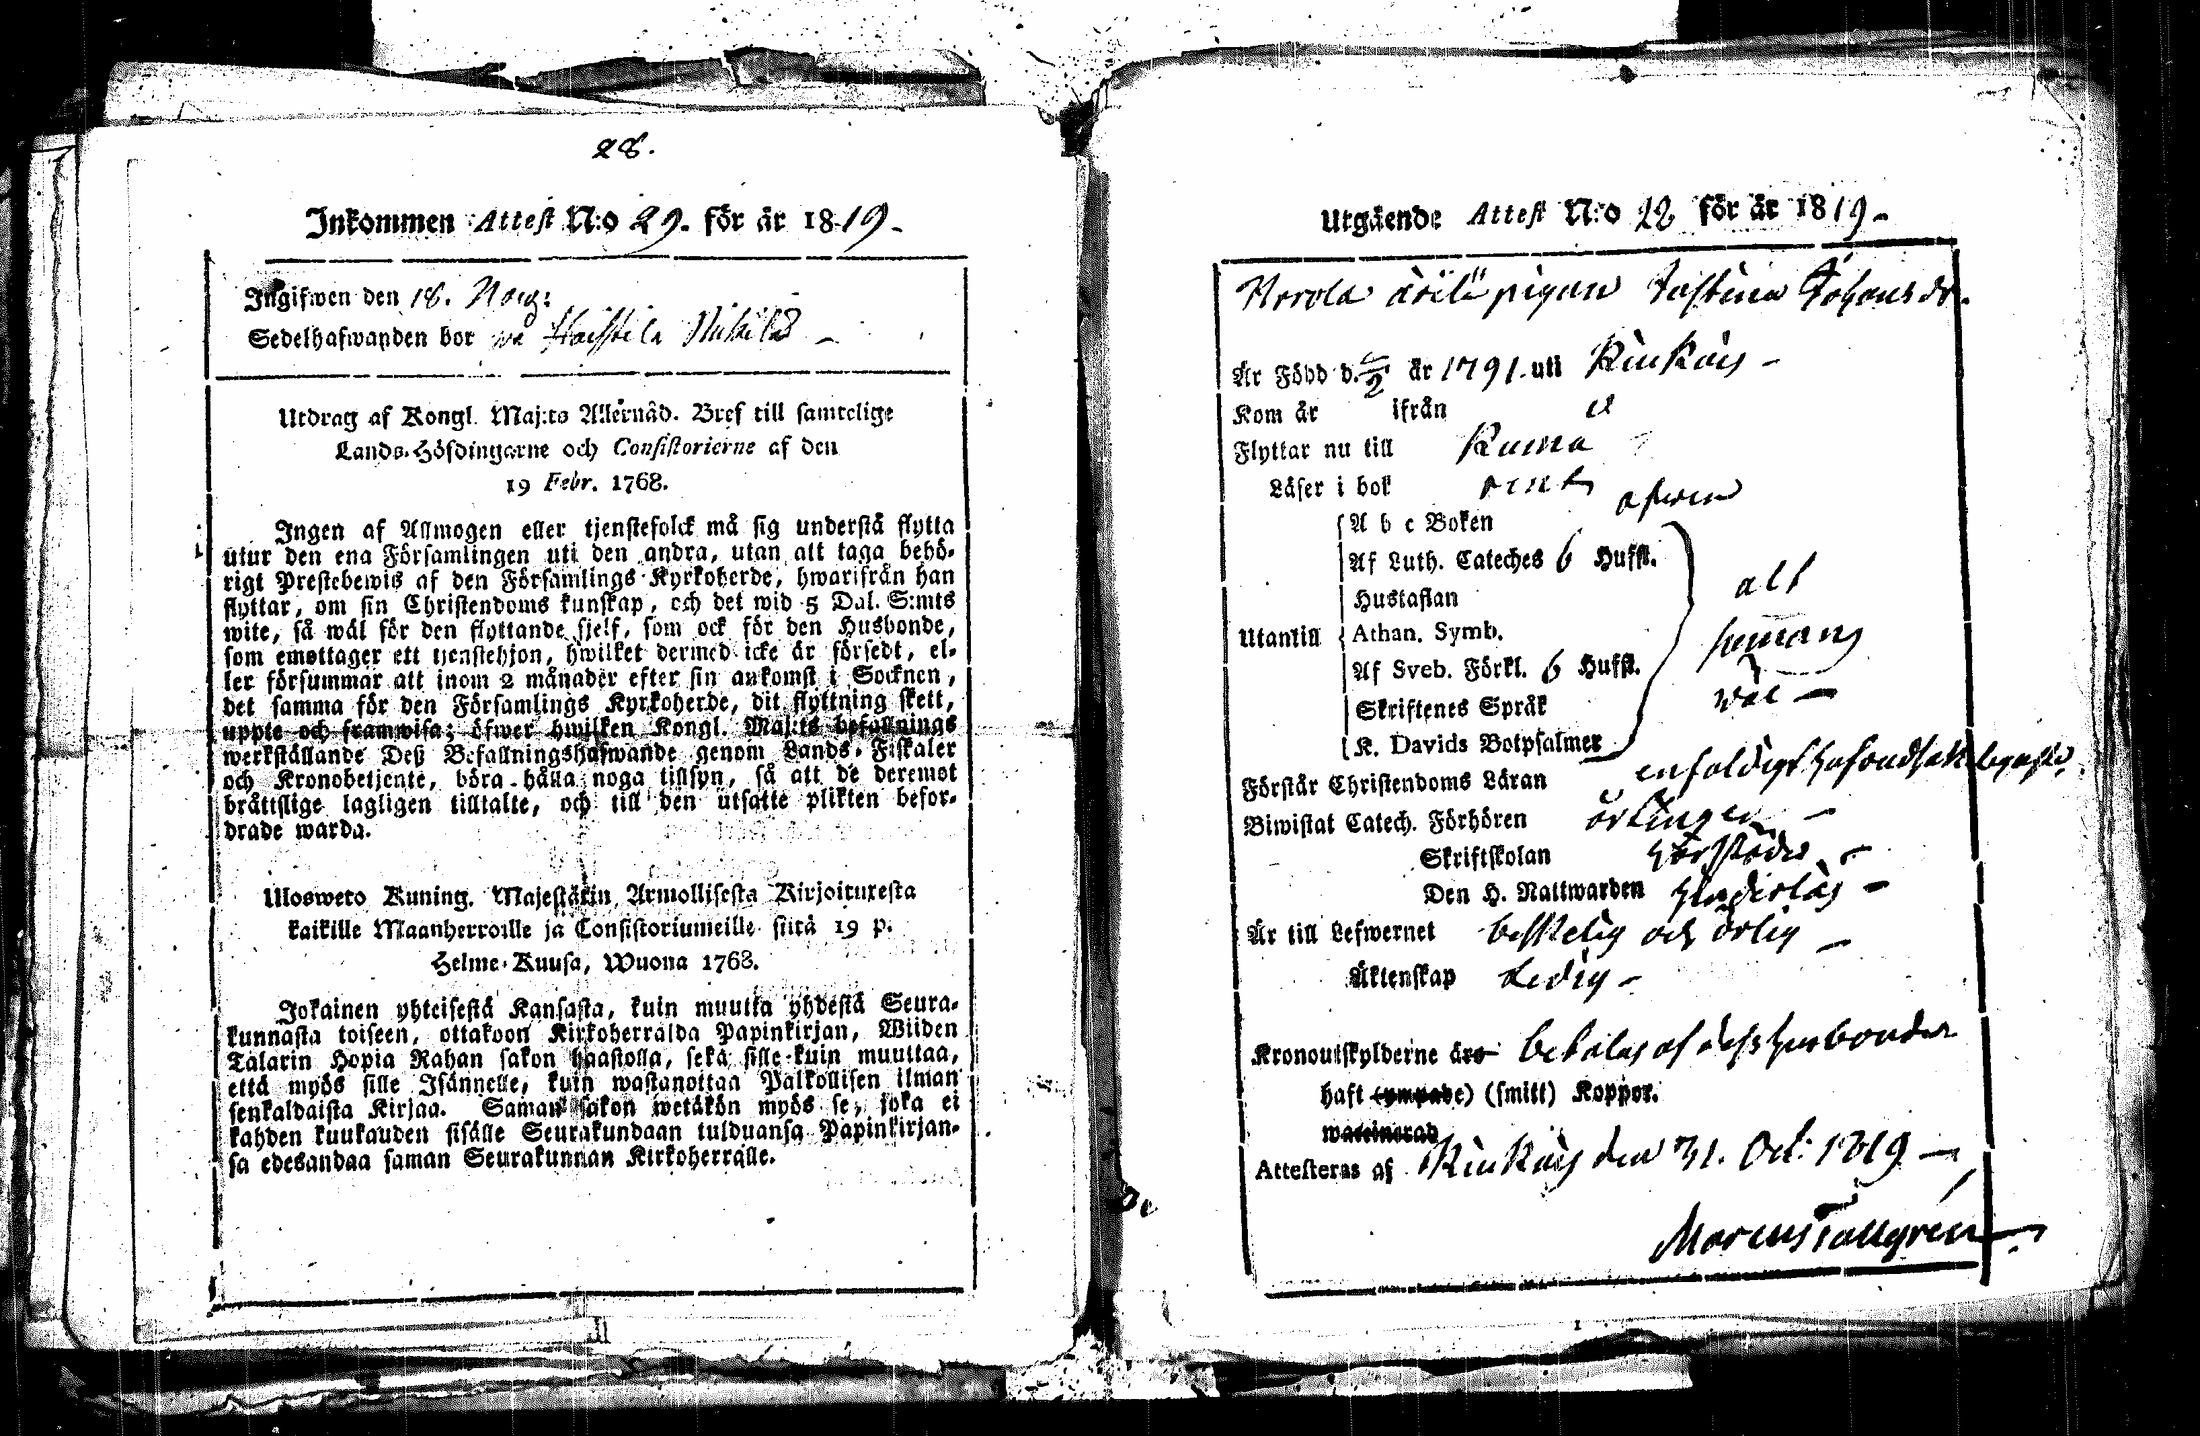 28.
Inkommen Attest N:o 29. för år 1819.
Ingifwen den 18. Nov:
Sedelhafwanden bor på Haistila Nikilä
Utdrag af Kongl. Maj:ts Allernåd. Bref till samtelige
Lands-Höfdingarne och Consistorierne af den
19 Febr. 1768.
Ingen af Allmogen eller tjenstefolck må sig understå flytta
utur den ena Församlingen uti den andra, utan att taga behö-
rigt Prestebewis af den Församlings Kyrkoherde, hwarifrån han
flyttar, om sin Christendoms kunskap, och det wid 5 Dal. S:mts
wite, så wäl för den flyttande sjelf, som ock för den Husbonde,
som emottager ett tjenstehjon, hwilket dermed icke är försedt, el-
ler försummar att inom 2 månader efter sin ankomst i Socknen,
det samma för den Församlings Kyrkoherde, dit flyttning skett,
uppte och framwisa; öfwer hwilken Kongl. Maj:ts befallnings
werkställande Deß Befallningshafwande genom Lands-Fiskaler
och Kronobetjente, böra hålla noga tillsyn, så att de deremot
bråttslige lagligen tilltalte, och till den utsatte plikten befor-
drade warda.
Ulosweto Kuning. Majestätin Armollisesta Kirjoituxesta
kaikille Maanherroille ja Consistoriumeille siitä 19 p.
Helme-Kuusa, Wuona 1768.
Jokainen yhteisestä Kansasta, kuin muutta yhdestä Seura-
kunnasta toiseen, ottakoon Kirkoherralda Papinkirjan, Wiiden
Talarin Hopia Rahan sakon haastolla, sekä sille kuin muuttaa,
että myös sille Isännelle, kuin wastanottaa Palkollisen ilman
senkaldaista Kirjaa. Saman sakon wetäkön myös se, joka ei
kahden kuukauden sisälle Seurakundaan tulduansa Papinkirjan-
sa edesandaa saman Seurakunnan Kirkoherralle.
Utgående Attest N:o 28 för år 1819.
pigan Justina Johansdr.
Är Född d. år 1791. uti Kiukais
Kom år ifrån
Flyttar nu till
Läser i bok rent
A b c Boken
Af Luth. Cateches 6 Hufst.
Hustaflan
Utantill Athan. Symb. alt
Af Sveb. Förkl. 6 Hufst.
Skriftenes Språk wäl
K. Davids Botpsalmer
Förstår Christendoms Läran
Biwistat Catech. Förhören
Skriftskolan
Den H. Nattwarden
Är till Lefwernet beskelig och ärlig
Äktenskap Ledig
Kronoutskylderne äro betalas af dess husbonder
haft (ympade) (smitt) Koppor.
Attesteras af Kiukais den 31. Oct: 1819
Marcus Tallgren